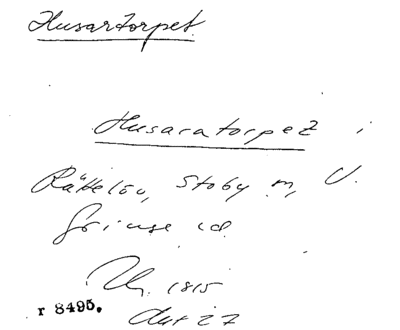 Husartorpet.
Husaratorpet i
Rättelöv, Stoby sn, V.
Göinge hd.
1815
Akt 27
r 8495.